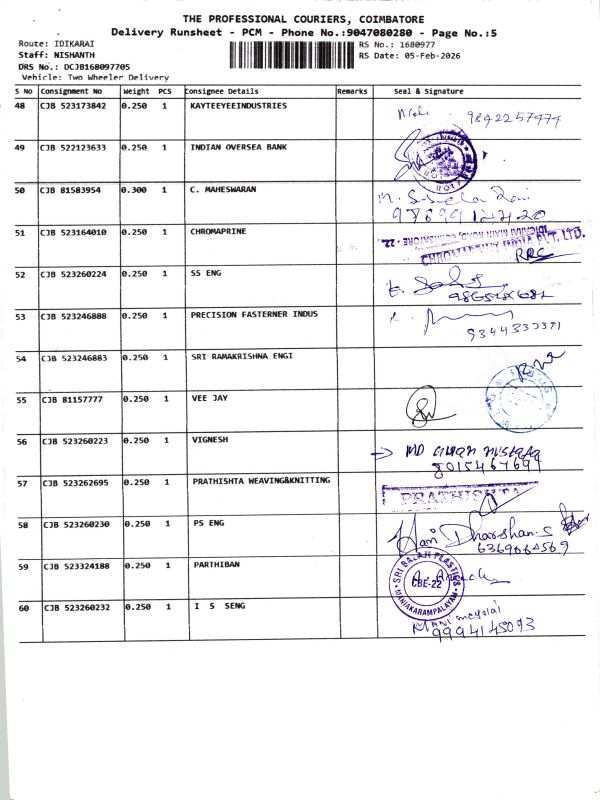 THE PROFESSIONAL COURIERS, COIMBATORE
Delivery Runsheet - PCM - Phone No.:9047080280 - Page No.:5
Route: IDIKARAI
RS No.: 1680977
Staff: NISHANTH
RS Date: 05-Feb-2026
DRS No.: DCJB168097705
Vehicle: Two Wheeler Delivery
S No Consignment No Weight PCS Consignee Details Remarks Seal & Signature
48 CJB 523173842 0.250 1 KAYTEEYEEINDUSTRIES 9842257474
49 CJB 522123633 0.250 1 INDIAN OVERSEA BANK
50 CJB 81583954 0.300 1 C. MAHESWARAN
51 CJB 523164010 0.250 1 CHROMAPRINE
IDIGARAI MAIN ROAD, COIMBATORE - 22.
INDIA PVT. LTD.
52 CJB 523260224 0.250 1 SS ENG
53 CJB 523246888 0.250 1 PRECISION FASTERNER INDUS
54 CJB 523246883 0.250 1 SRI RAMAKRISHNA ENGI
55 CJB 81157777 0.250 1 VEE JAY
56 CJB 523260223 0.250 1 VIGNESH
8015467699
57 CJB 523262695 0.250 1 PRATHISHTA WEAVING&KNITTING
PRATHISHTA
58 CJB 523260230 0.250 1 PS ENG
Hari Dharshan.S
59 CJB 523324188 0.250 1 PARTHIBAN
SRI BALAJI PLASTICS
CBE-22
MANIAKARAMPALAYAM
60 CJB 523260232 0.250 1 I S SENG
9994145093